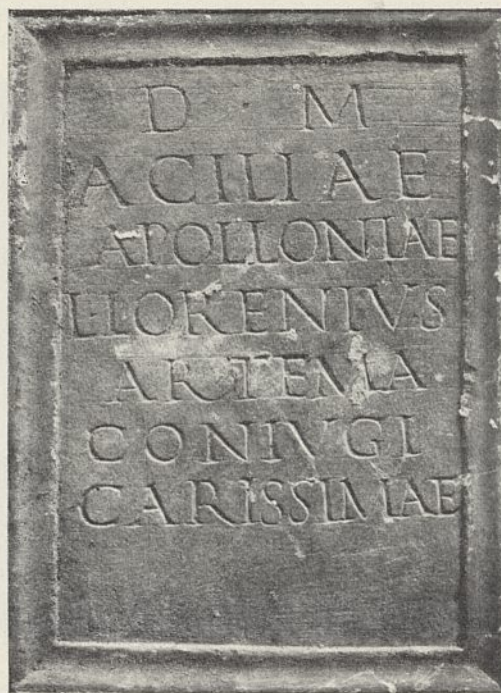 D M
ACILIAE
APOLLONIAE
L·LORENIVS
ARTEMA
CONIVGI
CARISSIMAE